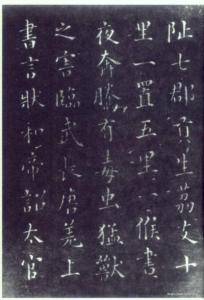 阯七郡貢生荔支十
里一置五里一候晝
夜奔騰有毒虫猛獸
之害臨武長唐羌上
書言狀和帝詔太官